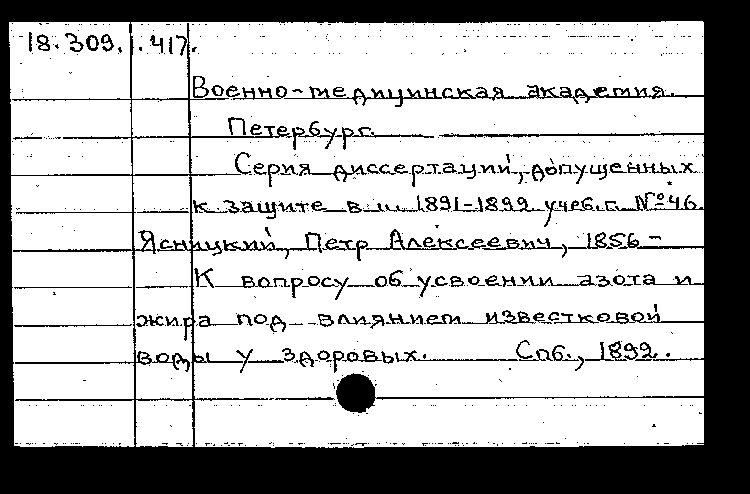 18.309.1.417.
Военно-медицинская академия.
Петербург.
Серия диссертаций, допущенных
к защите в 1891-1892 учеб.г. №46.
Ясницкий, Петр Алексеевич, 1856 -
К вопросу об усвоении азота и
жира под влиянием известковой
воды у здоровых. Спб., 1892.